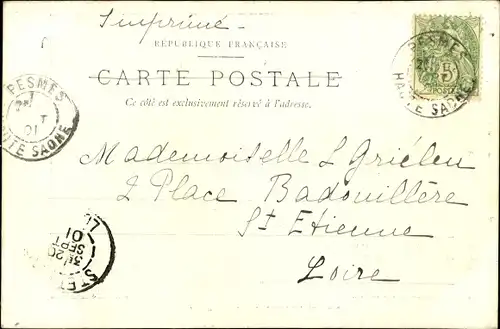 Imprimé
RÉPUBLIQUE FRANÇAISE
CARTE POSTALE
Ce côté est exclusivement réservé à l'adresse.
PESMES
HAUTE SAONE
5
POSTES
PESMES
01
HAUTE SAONE
Mademoiselle L Griéleu
2 Place Badouillère
St Etienne
Loire
20
SEPT
01